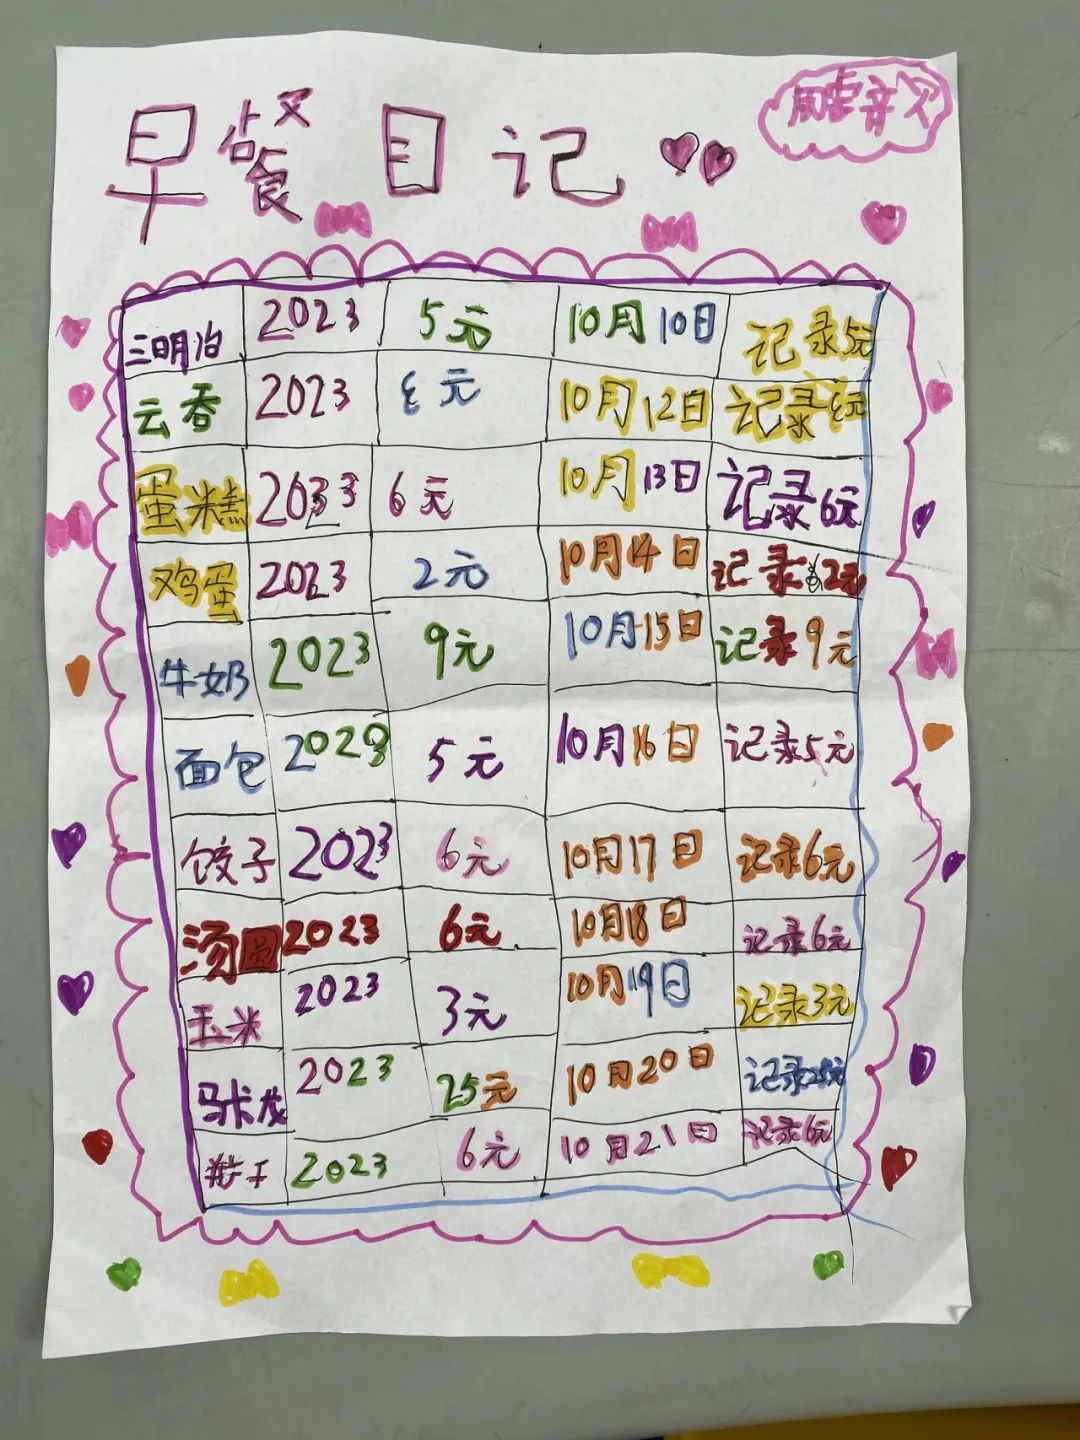 早餐日记
三明治 2023 5元 10月10日 记录5元
云吞 2023 元 10月12日 记录元
蛋糕 2023 6元 10月13日 记录6元
鸡蛋 2023 2元 10月14日 记录2元
牛奶 2023 9元 10月15日 记录9元
面包 2023 5元 10月16日 记录5元
饺子 2023 6元 10月17日 记录6元
汤圆 2023 6元 10月18日 记录6元
玉米 2023 3元 10月19日 记录3元
马术龙 2023 25元 10月20日 记录25元
2023 6元 10月21日 记录6元